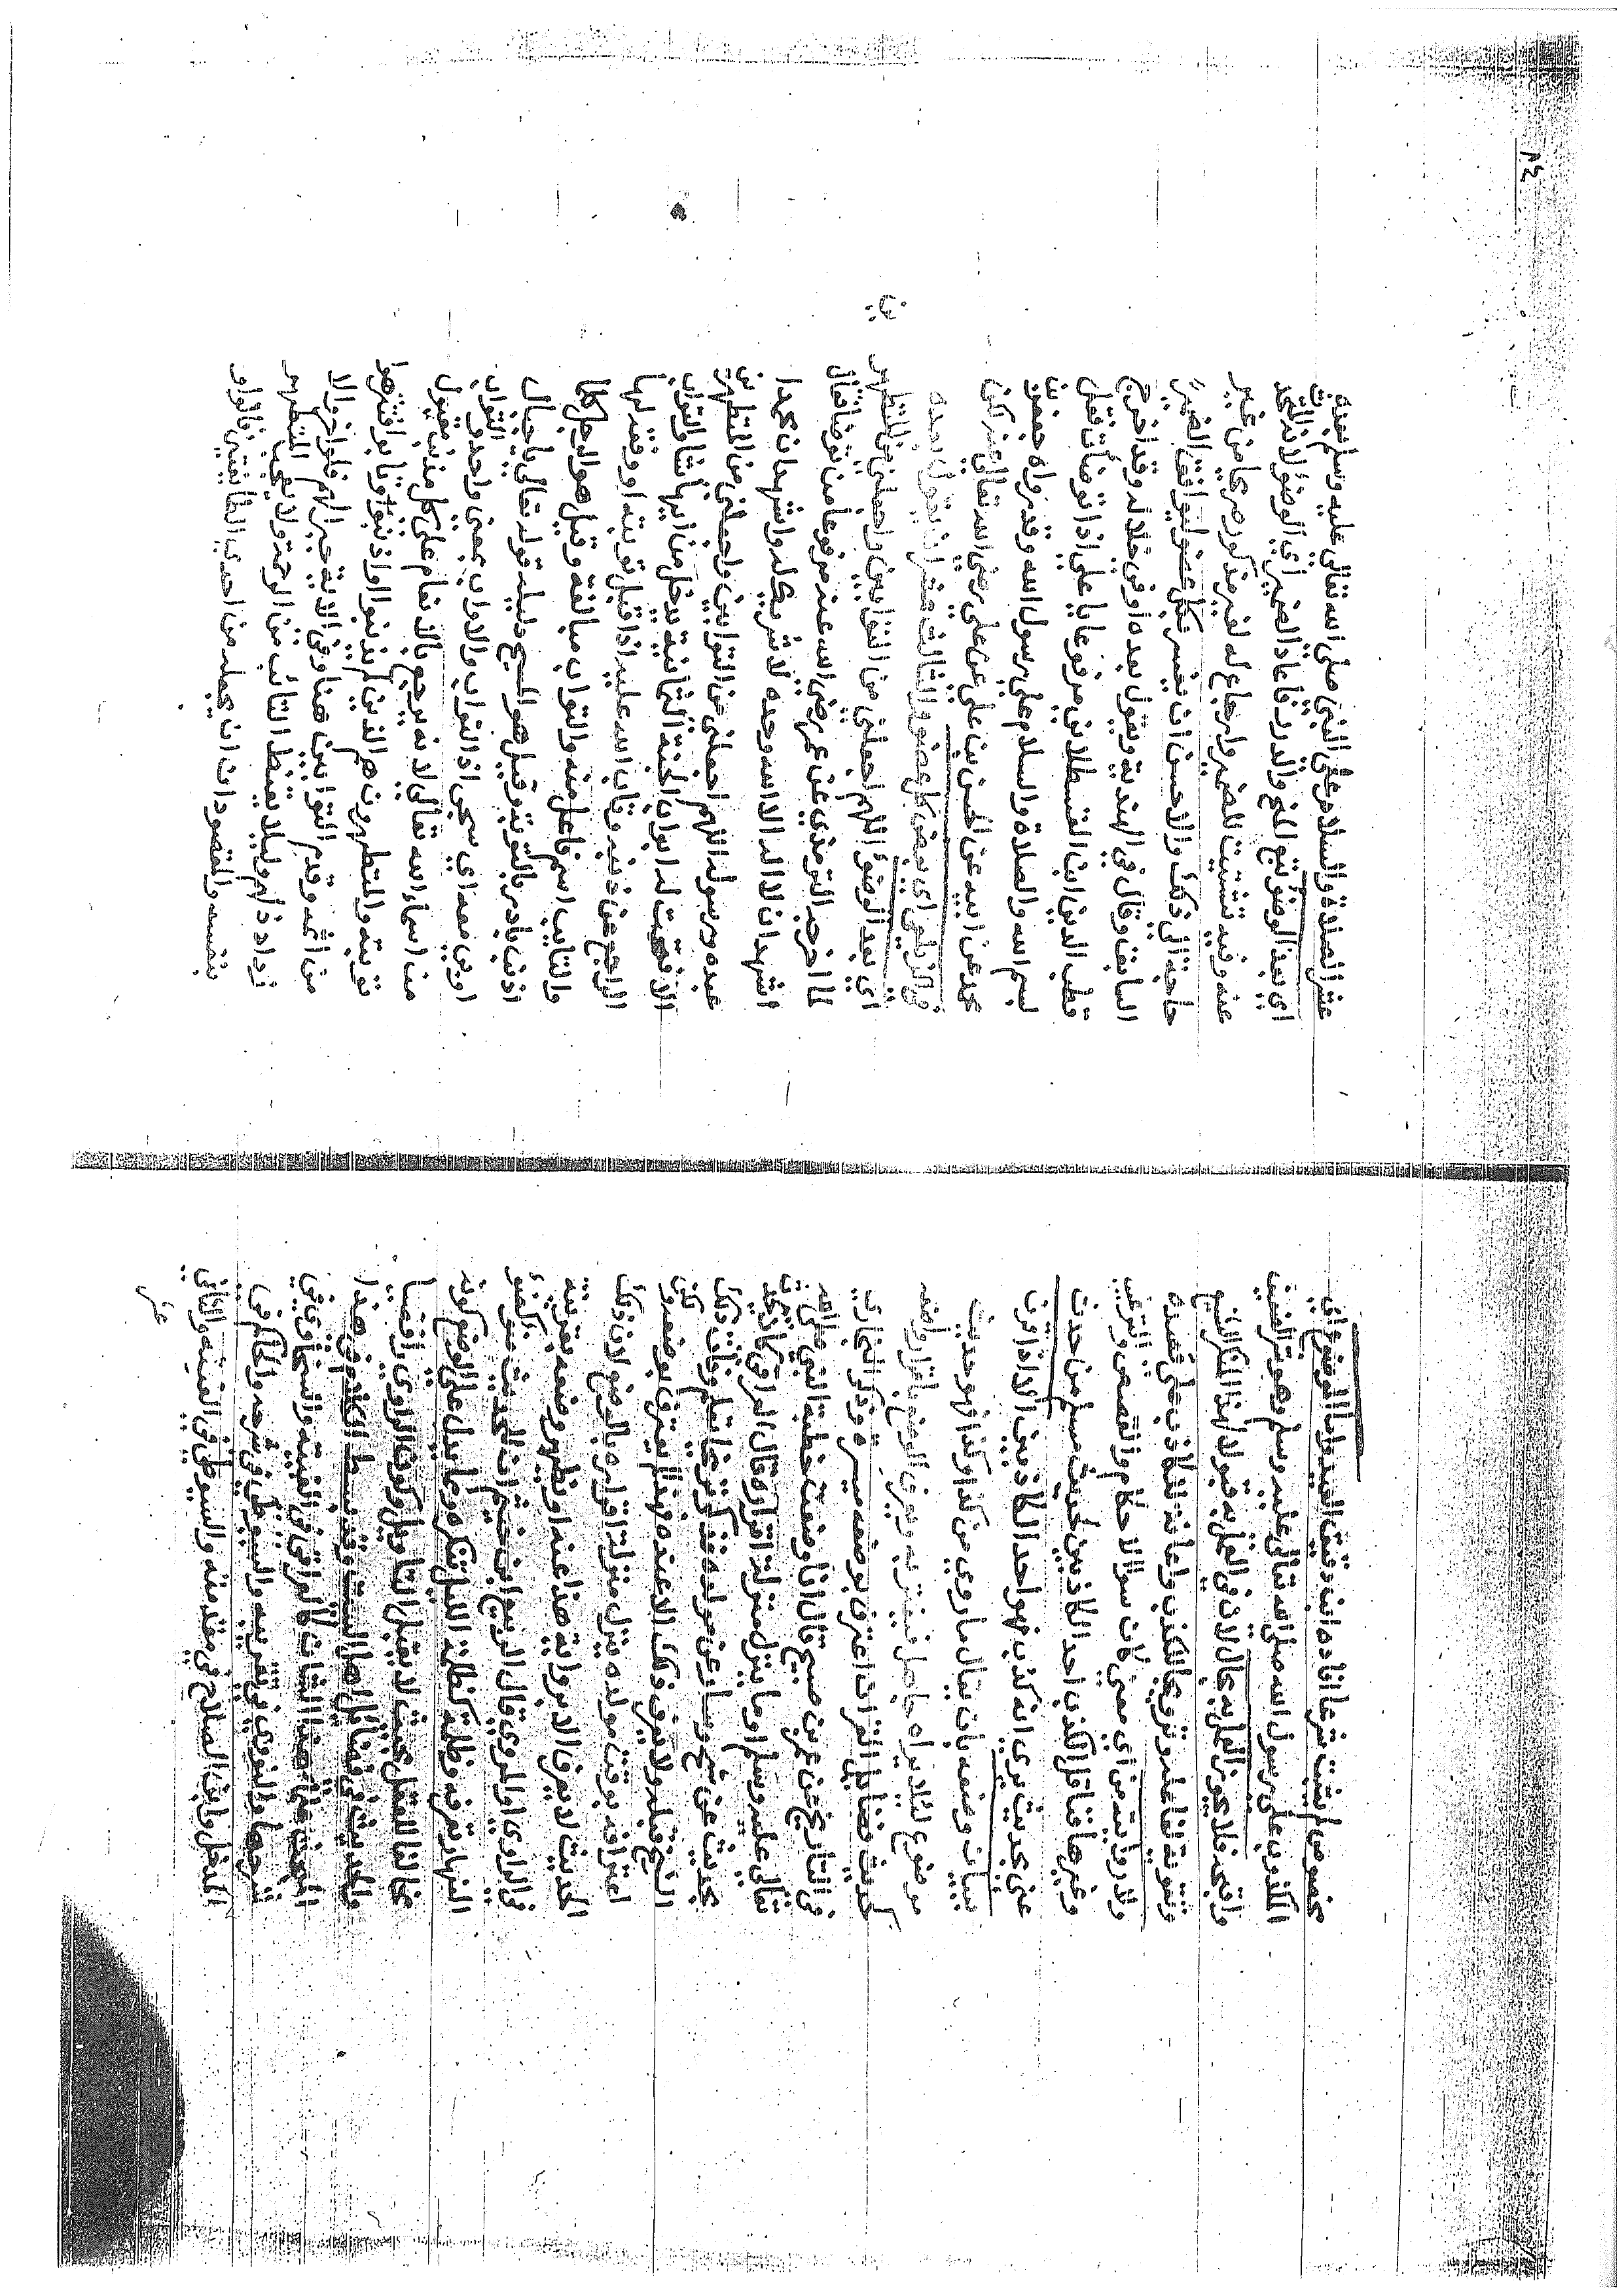 بخصوص لم يثبت شرعا افاده ابن دقيق العيد واما الموضوع اي
المكذوب على رسول الله صلى الله تعالى عليه وسلم وهو شر الضعيف
واقبحه فلا يجوز العمل به بحال لان في العمل به قبولا لهذا المنكر الشنيع
وتقوية لفاعله وترويجا لكذب واعانة للكاذب على قصده
ولا روايته من اي معنى كان سوا الاحكام والقصص والترغيب
وغيرها فناقل الكذب احد الكاذبين لحديث مسلم من حدث
عني بحديث يرى انه كذب فهو احد الكاذبين الا اذا قرن
ببيان وضعه بان يقال ما روي من كذا وكذا فهو حديث
موضوع لئلا يراه جاهل فيغتر به ويعرف الوضع باقرار واضعه
كحديث فضايل القران اعترف بوضعه ميسرة وذكر البخاري
في التاريخ عن عمر بن صبيح قال انا وضعت خطبة النبي صلى الله
تعالى عليه وسلم او ما ينزل منزلة اقراره قال العراقي كان يحدث
بحديث عن شيخ ويسئل عن مولده فيذكر تاريخا يعلم وفات ذلك
الشيخ قبله ولا يعرف ذلك الا عنده فهذا لم يعترف بوضعه لكن
اعترافه بوقت مولده ينزل منزلة اقراره بالوضع لان ذلك
الحديث لا يعرف الا برواية هذا عنه او يظهر وضعه بقرينة
في الراوي او المروي قال الربيع ابن خيثم ان للحديث ضوء كضوء
النهار تعرفه وظلمة كظلمة الليل تنكره ومما يدل على الوضع كونه
مخالفا للعقل بحيث لا يقبل التاويل وكون الراوي رافضيا
والحديث في فضائل اهل البيت وقد بسط الكلام في هذا
المبحث العراقي في الفيته والسخاوي في
شرحها والنووي في تقريبه والسيوطي في شرحه والحاكم في
المدخل وابن الصلاح في مقدمته والسيوطي في الفيته والثاني
عشر
عشر الصلاة والسلام على النبي صلى الله تعالى عليه وسلم بعده
اي بعد الوضوء
عنه وفيه تشتيت للضمير وارجاعه لغير مذكور صريحا من غير
حاجة الى ذلك والاحسن ان يفسر بكل عضو ليوافق الضمير
السابق وقال في الهندية ويقول بعده او في خلاله وقد اخرج
قطب الدين ابن القسطلاني مرفوعا يا علي اذا توضأت فقل
بسم الله والصلاة والسلام على رسول الله وقد رواه جعفر بن
محمد عن ابيه عن الحسن بن علي عن علي رضي الله تعالى عنه لكن
في الزيلعي اي بعد كل عضو والثالث عشر ان يقول بعده
اي بعد الوضوء اللهم اجعلني من التوابين واجعلني من المتطهرين
لما اخرجه الترمذي عن عمر رضي الله عنه مرفوعا من توضا فقال
اشهد ان لا اله الا الله وحده لا شريك له واشهد ان محمدا
عبده ورسوله اللهم اجعلني من التوابين واجعلني من المتطهرين
الا فتحت له ابواب الجنة الثمانية يدخل من ايها شا والتواب
الراجع عن ذنبه وتاب الله عليه اذا قبل توبته او وفقه لها
والتايب اسم فاعل منه والتواب مبالغة وقيل هو الرجاع كلما
اذنب بادر بالتوبة وقيل هو المسبح دليله قوله تعالى يا جبال
اوبي معه اي سبحي اذ التواب والاواب بمعنى واحد والتواب
من اسماء الله تعالى لانه يرجع بالانعام على كل مذنب بقبول
توبته والمتطهرون هم الذين لم يذنبوا او اذنبوا وتابوا فتطهروا
من اثمه وقدم التوابين هنا وفي الاية جبرا لهم فلو اخر والا
زداد ذلهم وليلا يقنط التائب من الرحمة ولا يعجب المتطهر
بنفسه والمقصود ان ان يجعله من احدى الطائفتين فالواو